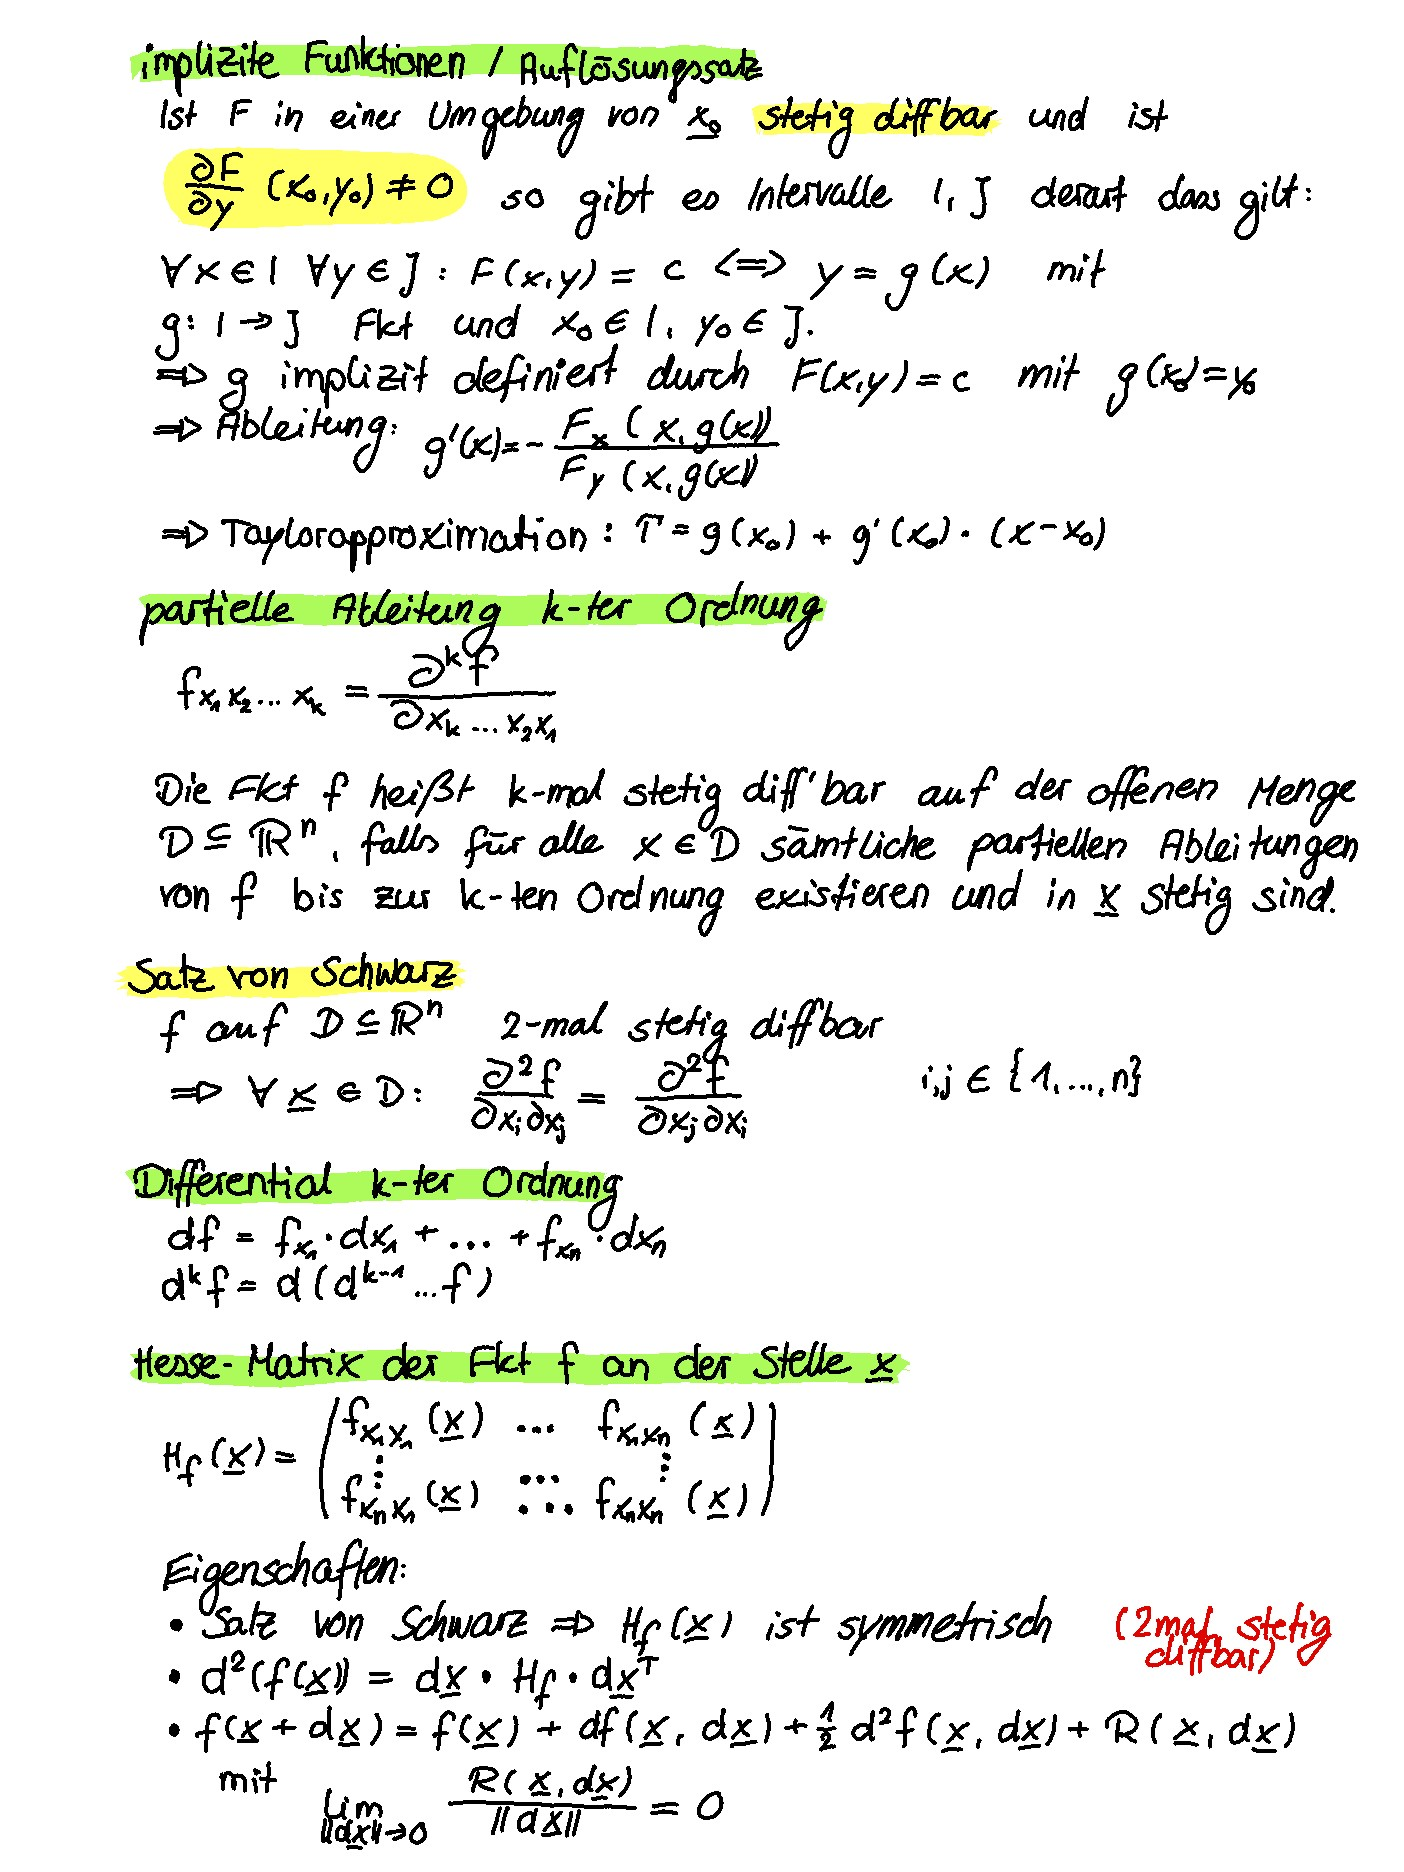 implizite Funktionen / Auflösungssatz
Ist F in einer Umgebung von x̲₀ stetig diffbar und ist
∂F/∂y (x₀,y₀) ≠ 0 so gibt es Intervalle I, J derart dass gilt:
∀x∈I ∀y∈J : F(x,y) = c <=> y = g(x) mit
g: I → J Fkt und x₀ ∈ I, y₀ ∈ J.
⇒ g implizit definiert durch F(x,y) = c mit g(x₀) = y₀
⇒ Ableitung: g'(x) = - F_x (x, g(x)) / F_y (x, g(x))
⇒ Taylorapproximation : T = g(x₀) + g'(x₀) · (x-x₀)
partielle Ableitung k-ter Ordnung
f_{x₁x₂...x_k} = ∂ᵏf / ∂x_k ... x₂x₁
Die Fkt f heißt k-mal stetig diff'bar auf der offenen Menge
D ⊆ ℝⁿ, falls für alle x ∈ D sämtliche partiellen Ableitungen
von f bis zur k-ten Ordnung existieren und in x̲ stetig sind.
Satz von Schwarz
f auf D ⊆ ℝⁿ 2-mal stetig diffbar
⇒ ∀ x̲ ∈ D: ∂²f/∂x_i∂x_j = ∂²f/∂x_j∂x_i i,j ∈ {1,...,n}
Differential k-ter Ordnung
df = f_{x₁} · dx₁ + ... + f_{xₙ} · dxₙ
dᵏf = d(dᵏ⁻¹...f)
Hesse-Matrix der Fkt f an der Stelle x̲
f_{x₁x₁}(x̲) ... f_{x₁xₙ}(x̲)
H_f(x̲) = ⋮ ... ⋮
f_{xₙx₁}(x̲) ... f_{xₙxₙ}(x̲)
Eigenschaften:
• Satz von Schwarz ⇒ H_f(x̲) ist symmetrisch (2mal stetig
diffbar)
• d²(f(x̲)) = dx̲ · H_f · dx̲ᵀ
• f(x̲ + dx̲) = f(x̲) + df(x̲, dx̲) + ½ d²f(x̲, dx̲) + R(x̲, dx̲)
mit lim_{||dx̲||→0} R(x̲, dx̲) / ||dx̲|| = 0